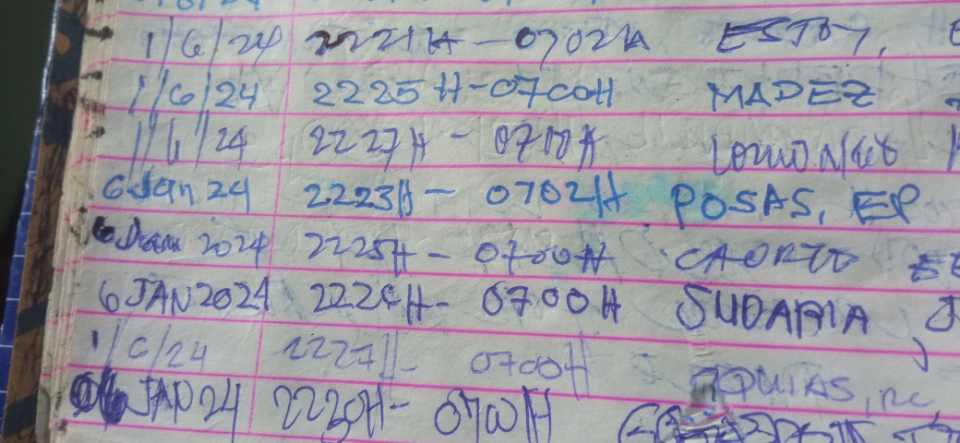 1/6/24 2221H - 0702H ESTOY,
1/6/24 2225H-0700H MADEZ
1/6/24 2227H - 0700H
6 Jan 24 2223H - 0702H POSAS, EP
6 Jan 2024 2225H - 0700H
6 JAN 2024 2224H- 0700H SUDARIA J
1/6/24 2227H - 0700H
06 JAN 24 2220H- 0700H